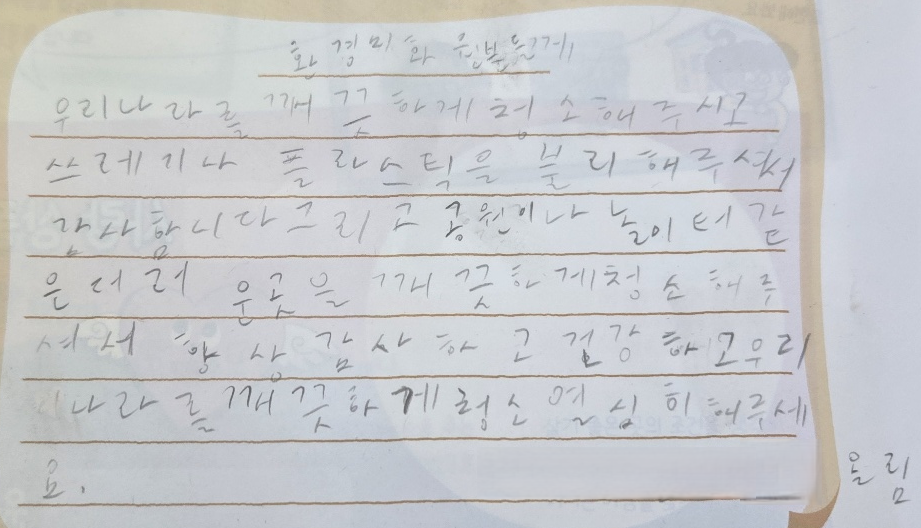 환경미화원분들게
우리나라를 깨끗하게 청소해주시고
쓰레기나 플라스틱을 불리해주셔서
감사합니다 그리고 공원이나 놀이터 같
은 더러 운곳을 깨끗하게청소해주
셔서 항상 감사하고 건강하고 우리
나라를 깨끗하게 청소 열심히 해주세
요.
올림